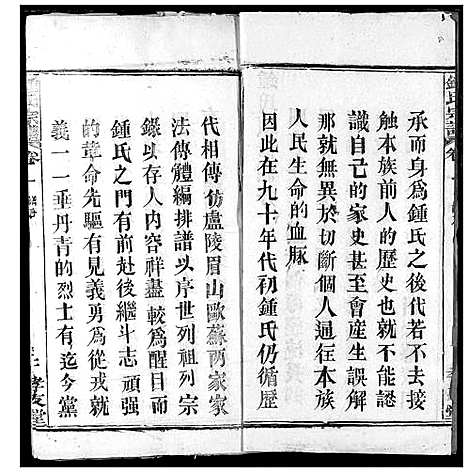 鍾氏宗譜
承而身爲鍾氏之後代若去接
触本族前人的歷史也就不能認
識自己的家史甚會産生誤解
那就無異於切斷個人與本族
人民生命的血脉
因此在九十年代初鍾氏仍循歷
代相傳仿盧陵眉山歐蘇两家家
法傳體編排譜以序世列祖列宗
錄以存人内容祥盡較為醒目而
鍾氏之内有前赴後繼斗志頑强
的革命先驅有見義勇爲從戎就
義一一垂丹青的烈士有迄今黨
宗譜 卷一
孝友堂